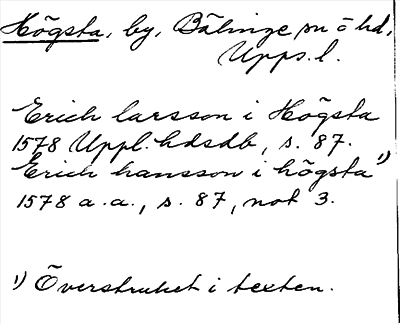 Högsta, by, Bälinge sn ō hd,
Upps. l.
Erich larsson i Högsta
1578 Uppl. hdsdb, s. 87.
Erich hansson i högsta 1)
1578 a. a., s. 87, not 3.
1) Överstruket i texten.